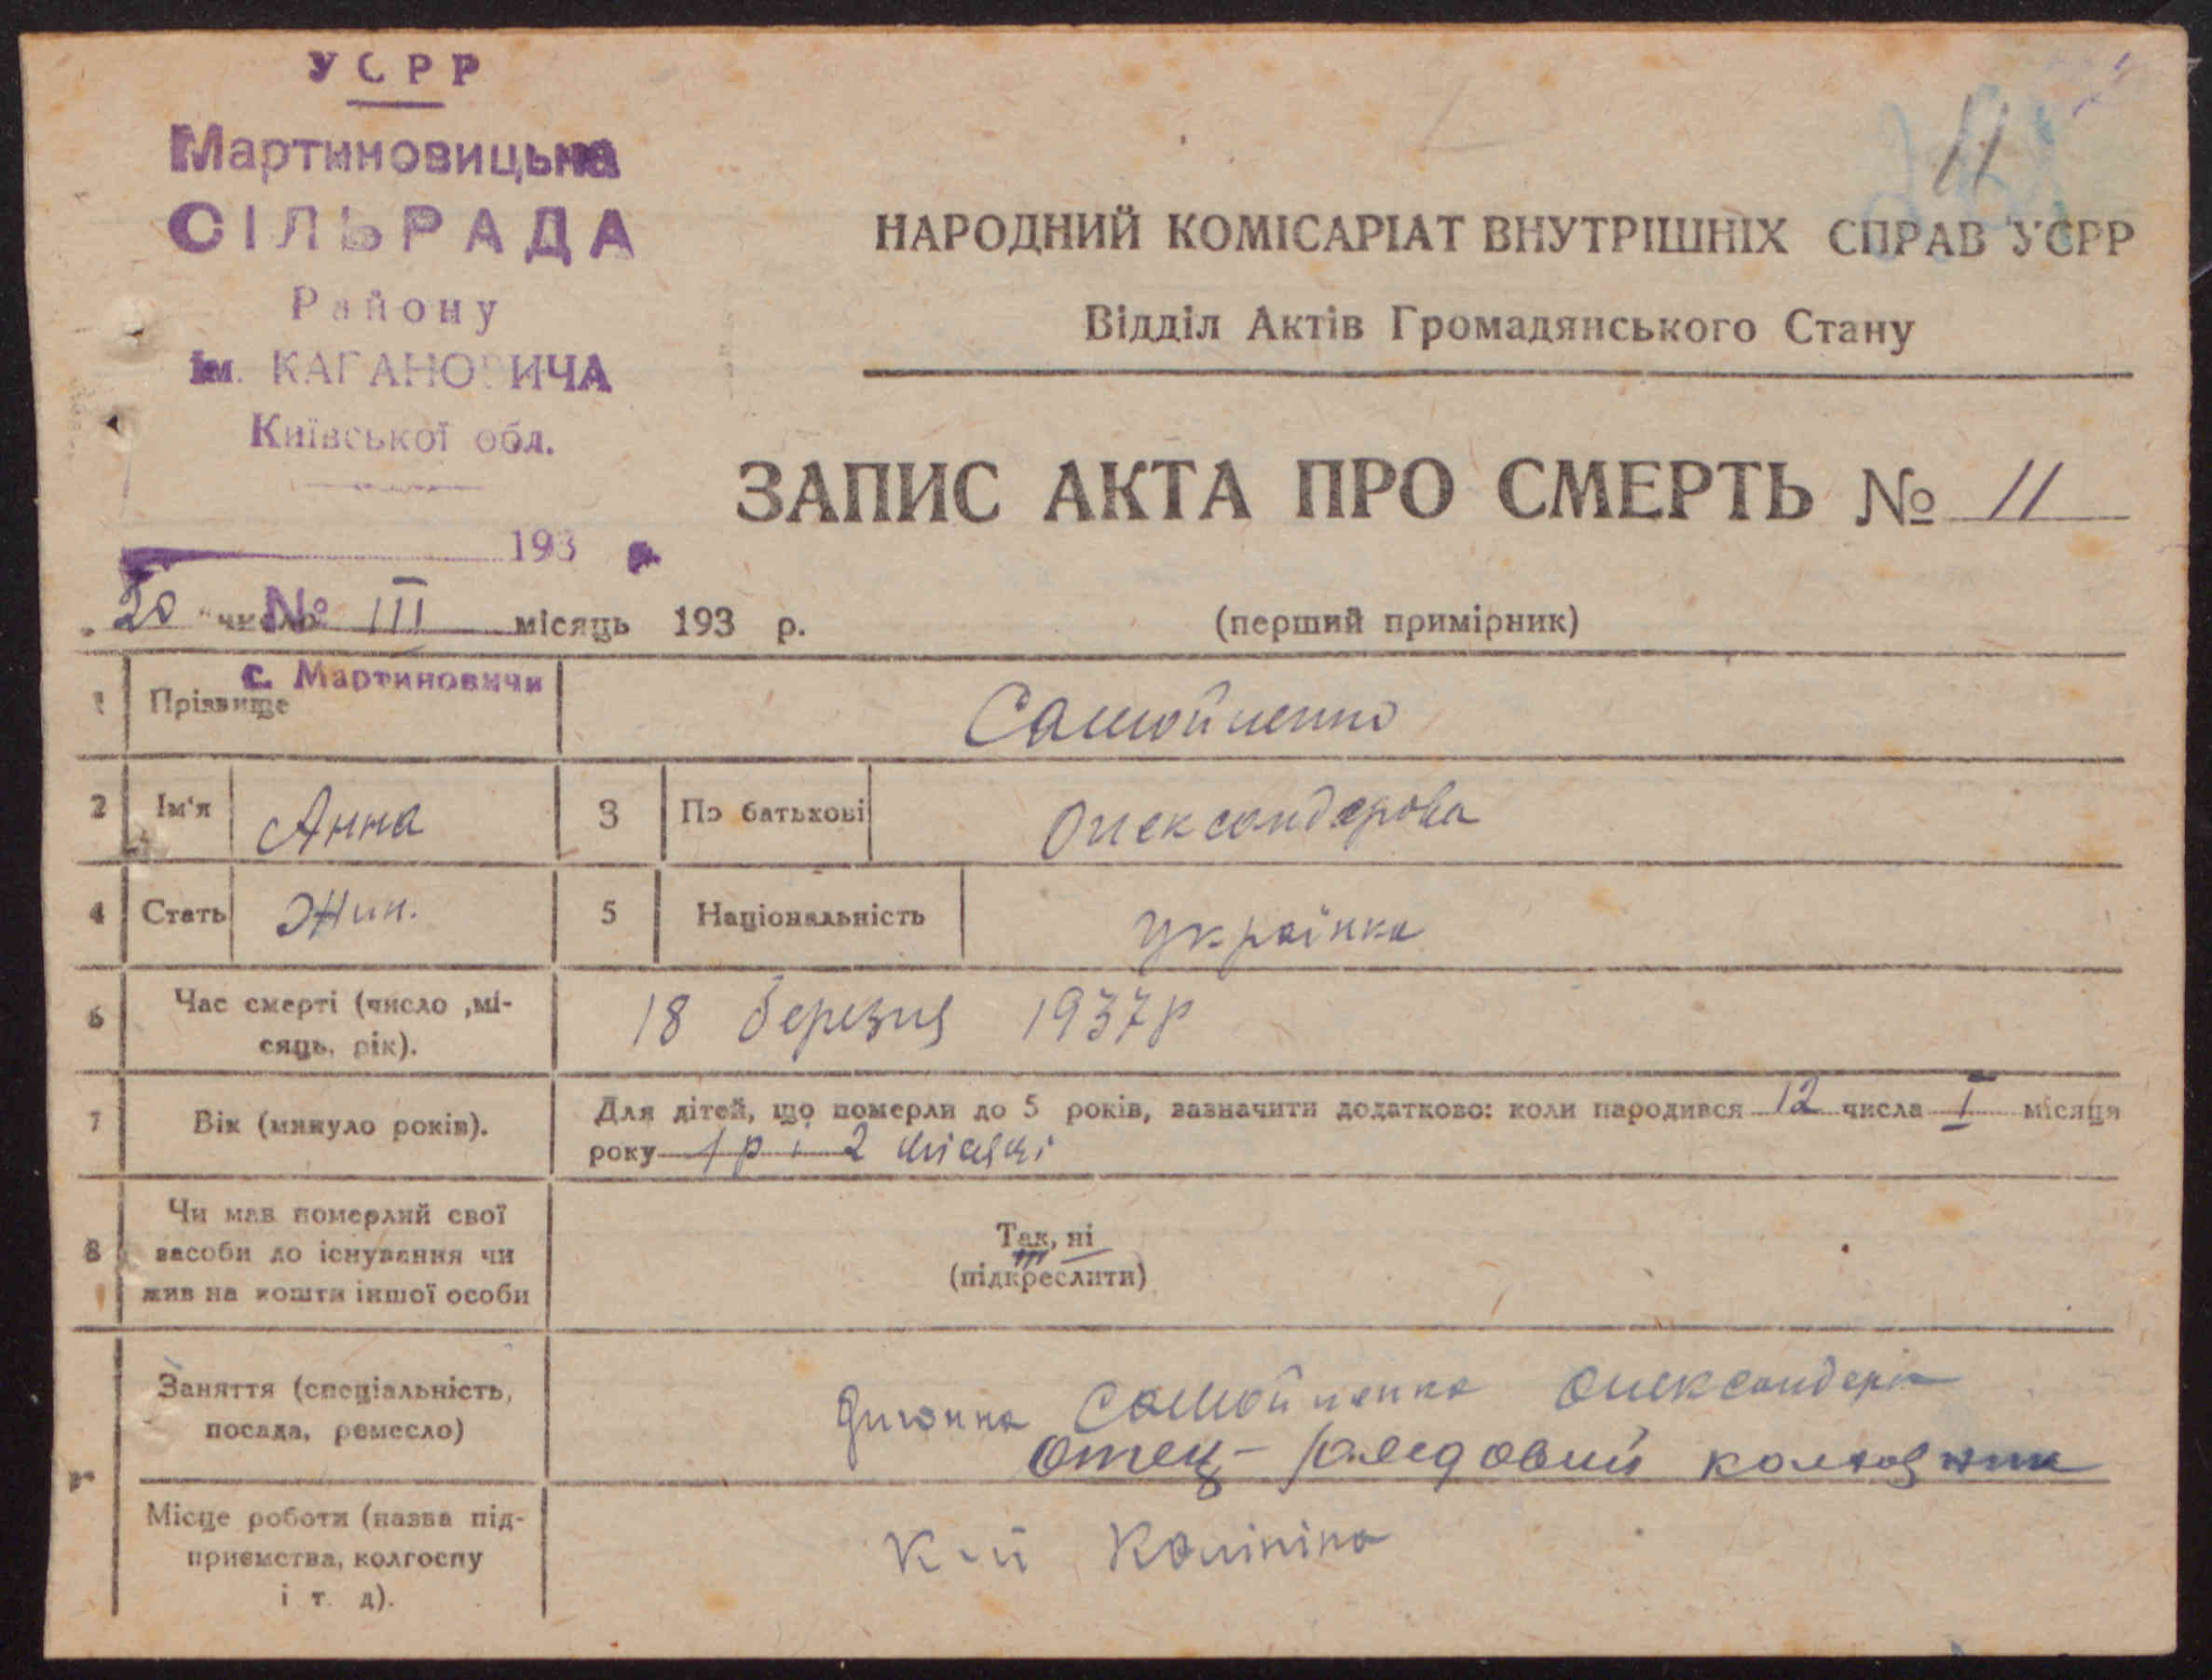 УСРР
Мартиновицька
СІЛЬРАДА
Району
ім. КАГАНОВИЧА
Київської обл.
193 р.
№
с. Мартиновичи
11
НАРОДНИЙ КОМІСАРІАТ ВНУТРІШНІХ СПРАВ УСРР
Відділ Актів Громадянського Стану
ЗАПИС АКТА ПРО СМЕРТЬ № 11
„20" число III місяць 193 р.
(перший примірник)
1 Прізвище Самойленко
2 Ім'я Анна 3 По батькові Олександерова
4 Стать Жин. 5 Національність українка
6 Час смерті (число ,мі-
сяць, рік). 18 березня 1937р
7 Вік (минуло років). Для дітей, що померли до 5 років, зазначити додатково: коли народився 12 числа I місяця
року 1 р і 2 місяці
8 Чи мав померлий свої
засоби до існування чи
жив на кошти іншої особи
Так, ні
(підкреслити)
Заняття (спеціальність,
посада, ремесло)
Самойленка Олександра
Отец - рядовий колгоспник
Місце роботи (назва під-
приємства, колгоспу
і т. д).
К-п Калініна